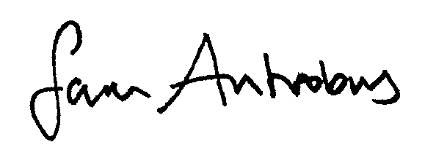 Sam Antrobus